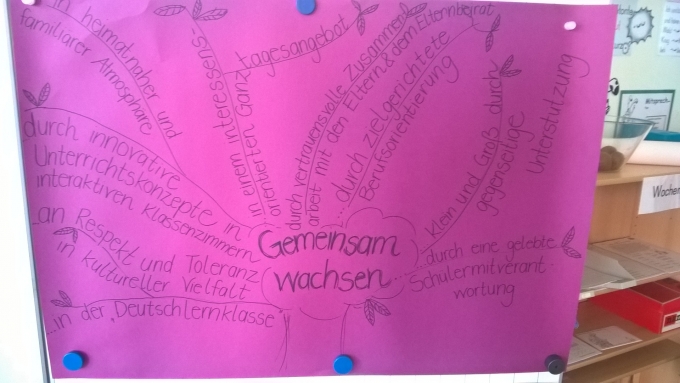 in heimatnaher und
familiärer Atmosphäre
in einem interessens-
orientierten Ganztagesangebot
durch vertrauensvolle Zusammen-
arbeit mit den Eltern & dem Elternbeirat
durch zielgerichtete
Berufsorientierung
Klein und Groß durch
gegenseitige
Unterstützung
durch innovative
Unterrichtskonzepte in
interaktiven Klassenzimmern
an Respekt und Toleranz
in kultureller Vielfalt
...in der "Deutschlernklasse"
Gemeinsam
wachsen...
...durch eine gelebte
Schülermitverant-
wortung
Wochen